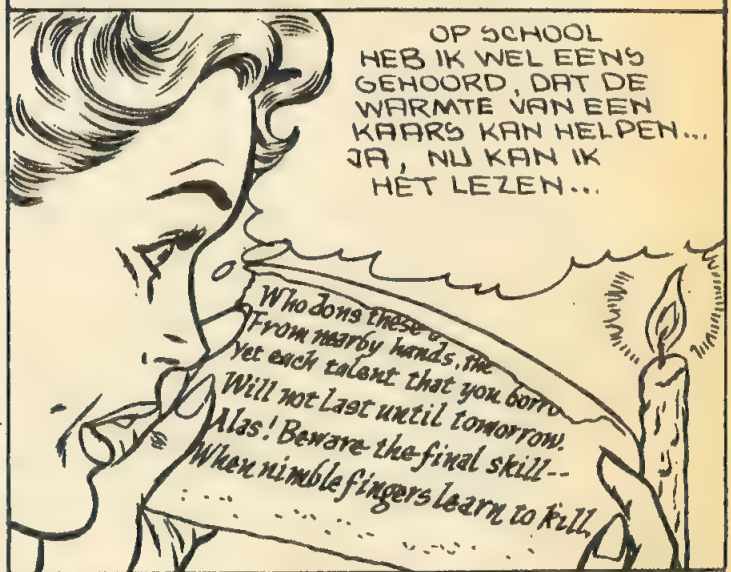 OP SCHOOL
HEB IK WEL EENS
GEHOORD, DAT DE
WARMTE VAN EEN
KAARS KAN HELPEN...
JA, NU KAN IK
HET LEZEN...
Who dons these
From nearby hands, the
Yet each talent that you borro
Will not last until tomorrow.
Alas! Beware the final skill--
When nimble fingers learn to kill.